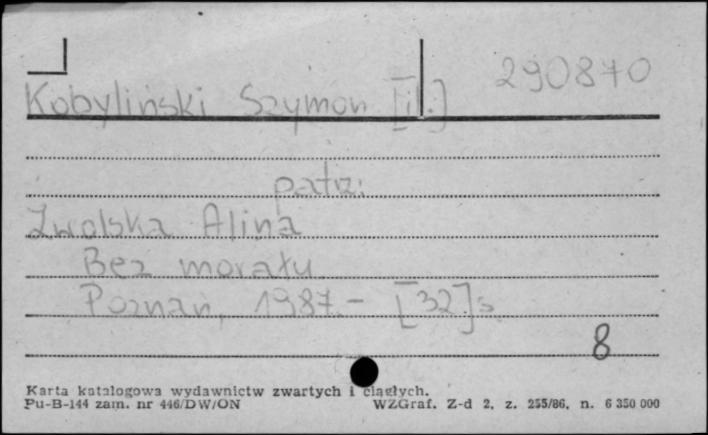 290870
Kobyliński Szymon [il.]
patrz:
Zwolska Alina
Bez morału
Poznań, 1987.- [32]s.
8
Karta katalogowa wydawnictw zwartych i ciągłych.
Pu-B-144 zam. nr 446/DW/ON WZGraf. Z-d 2, z. 255/86, n. 6 350 000